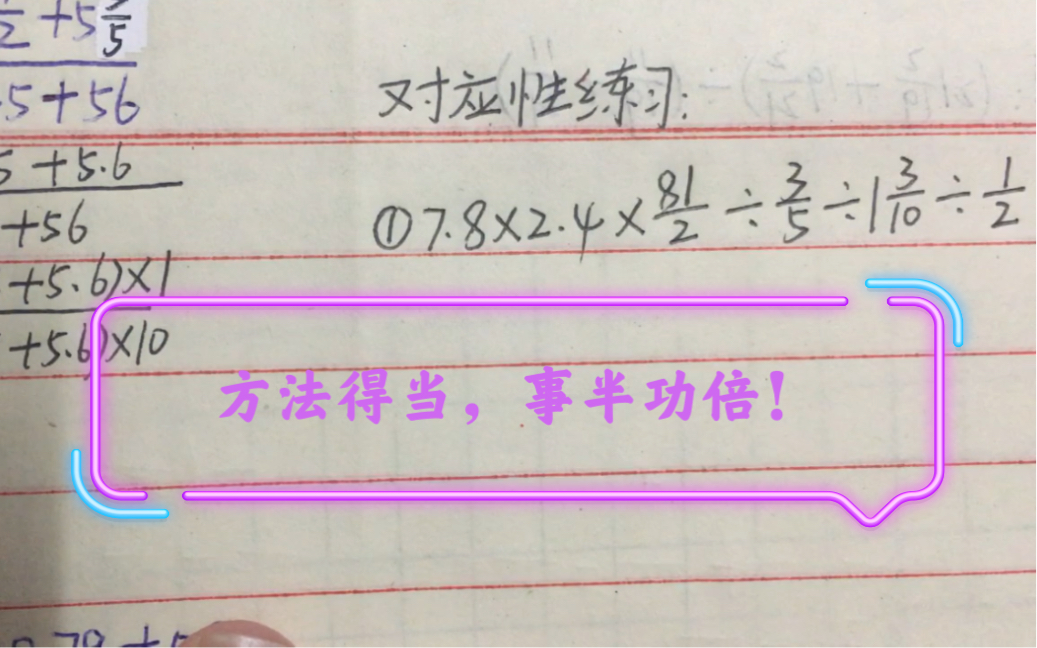 +5
5
.5+56
+5.6
+56
+5.6)×1
+5.6)×10
对应性练习:
①7.8×2.4×81/2÷3/5÷1 3/10÷1/2
方法得当，事半功倍！